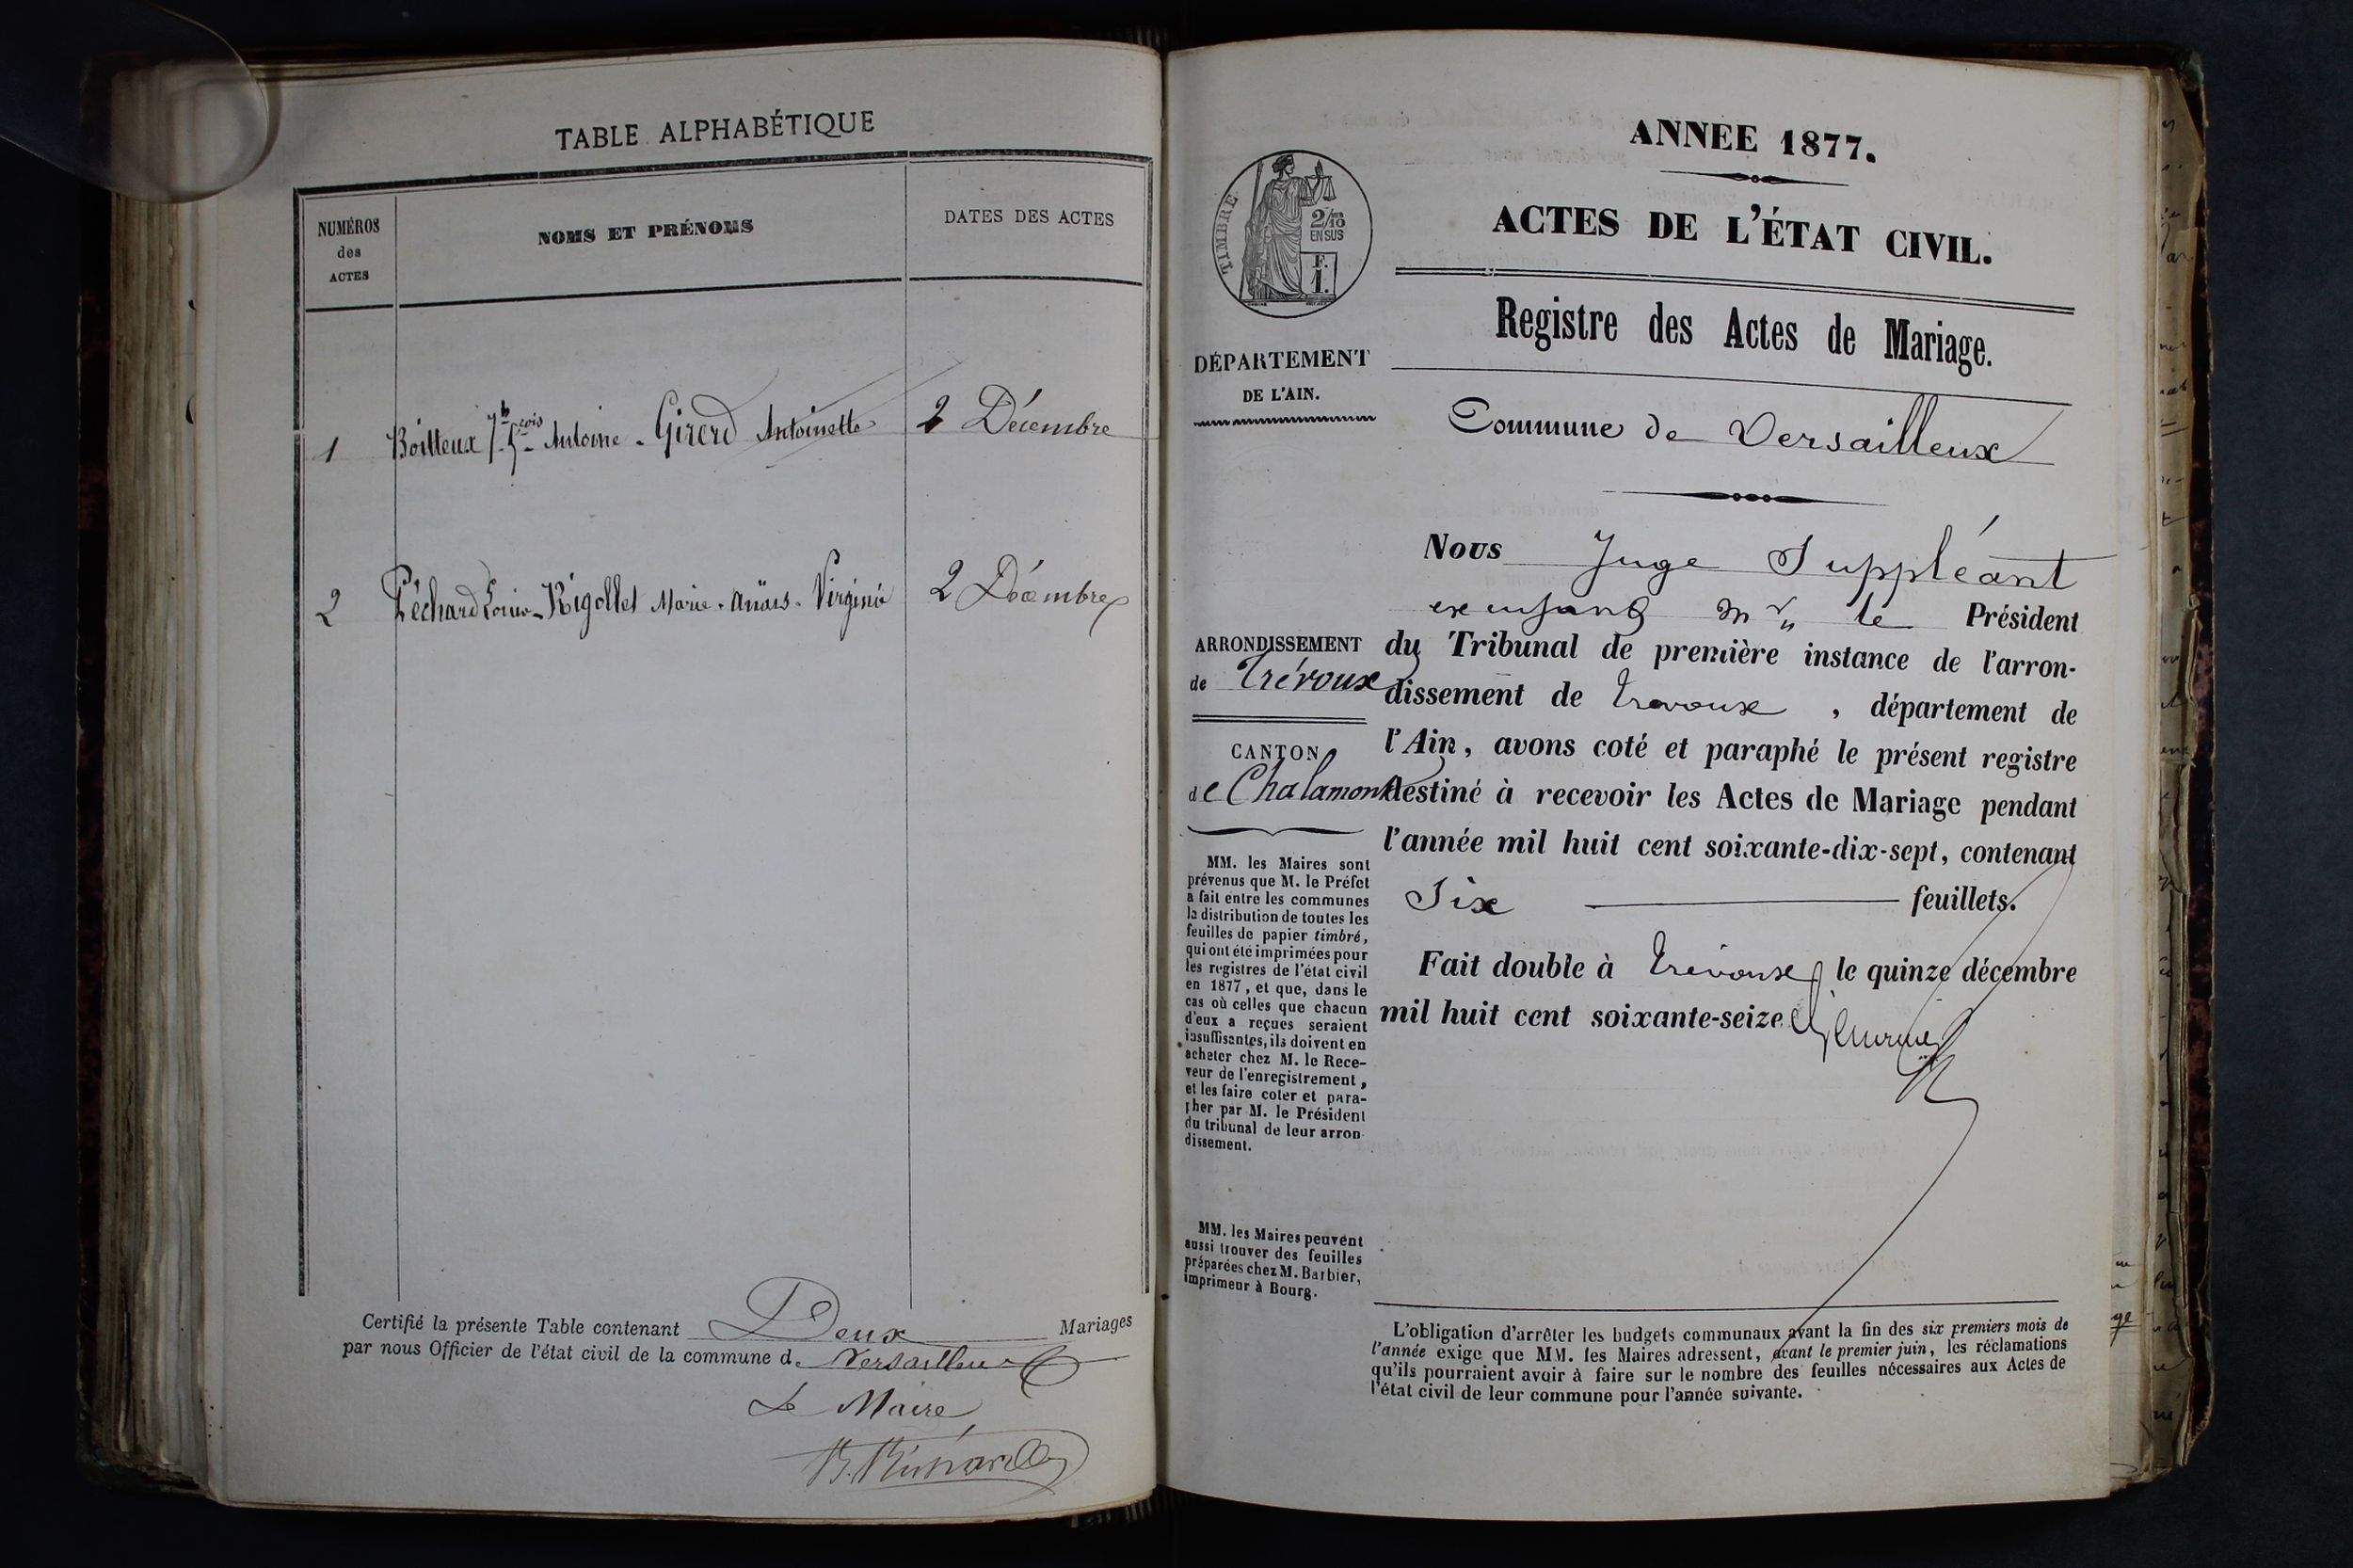 TABLE ALPHABÉTIQUE
NUMÉROS
des
ACTES
NOMS ET PRÉNOMS
DATES DES ACTES
1 Boitteux Antoine - Girerd Antoinette 2 Décembre
2 Péchard Louis - Rigollet Marie - Anaïs - Virginie 2 Décembre
Certifié la présente Table contenant Deux Mariages
par nous Officier de l'état civil de la commune de Versailleux
Le Maire
ANNÉE 1877.
ACTES DE L'ÉTAT CIVIL.
TIMBRE
2/10
EN SUS
F.
1.
Registre des Actes de Mariage.
DÉPARTEMENT
DE L'AIN.
Commune de Versailleux
Nous Juge Suppléant
Mr le Président
ARRONDISSEMENT
de Trévoux
CANTON
de Chalamont
du Tribunal de première instance de l'arron-
dissement de Trevoux, département de
l'Ain, avons coté et paraphé le présent registre
destiné à recevoir les Actes de Mariage pendant
l'année mil huit cent soixante-dix-sept, contenant
Six feuillets.
Fait double à Trévoux le quinze décembre
mil huit cent soixante-seize
MM. les Maires sont
prévenus que M. le Préfet
a fait entre les communes
la distribution de toutes les
feuilles de papier timbré,
qui ont été imprimées pour
les registres de l'état civil
en 1877, et que, dans le
cas où celles que chacun
d'eux a reçues seraient
insuffisantes, ils doivent en
acheter chez M. le Rece-
veur de l'enregistrement,
et les faire coter et para-
pher par M. le Président
du tribunal de leur arron-
dissement.
MM. les Maires peuvent
aussi trouver des feuilles
préparées chez M. Barbier,
imprimeur à Bourg.
L'obligation d'arrêter les budgets communaux avant la fin des six premiers mois de
l'année exige que MM. les Maires adressent, avant le premier juin, les réclamations
qu'ils pourraient avoir à faire sur le nombre des feuilles nécessaires aux Actes de
l'état civil de leur commune pour l'année suivante.